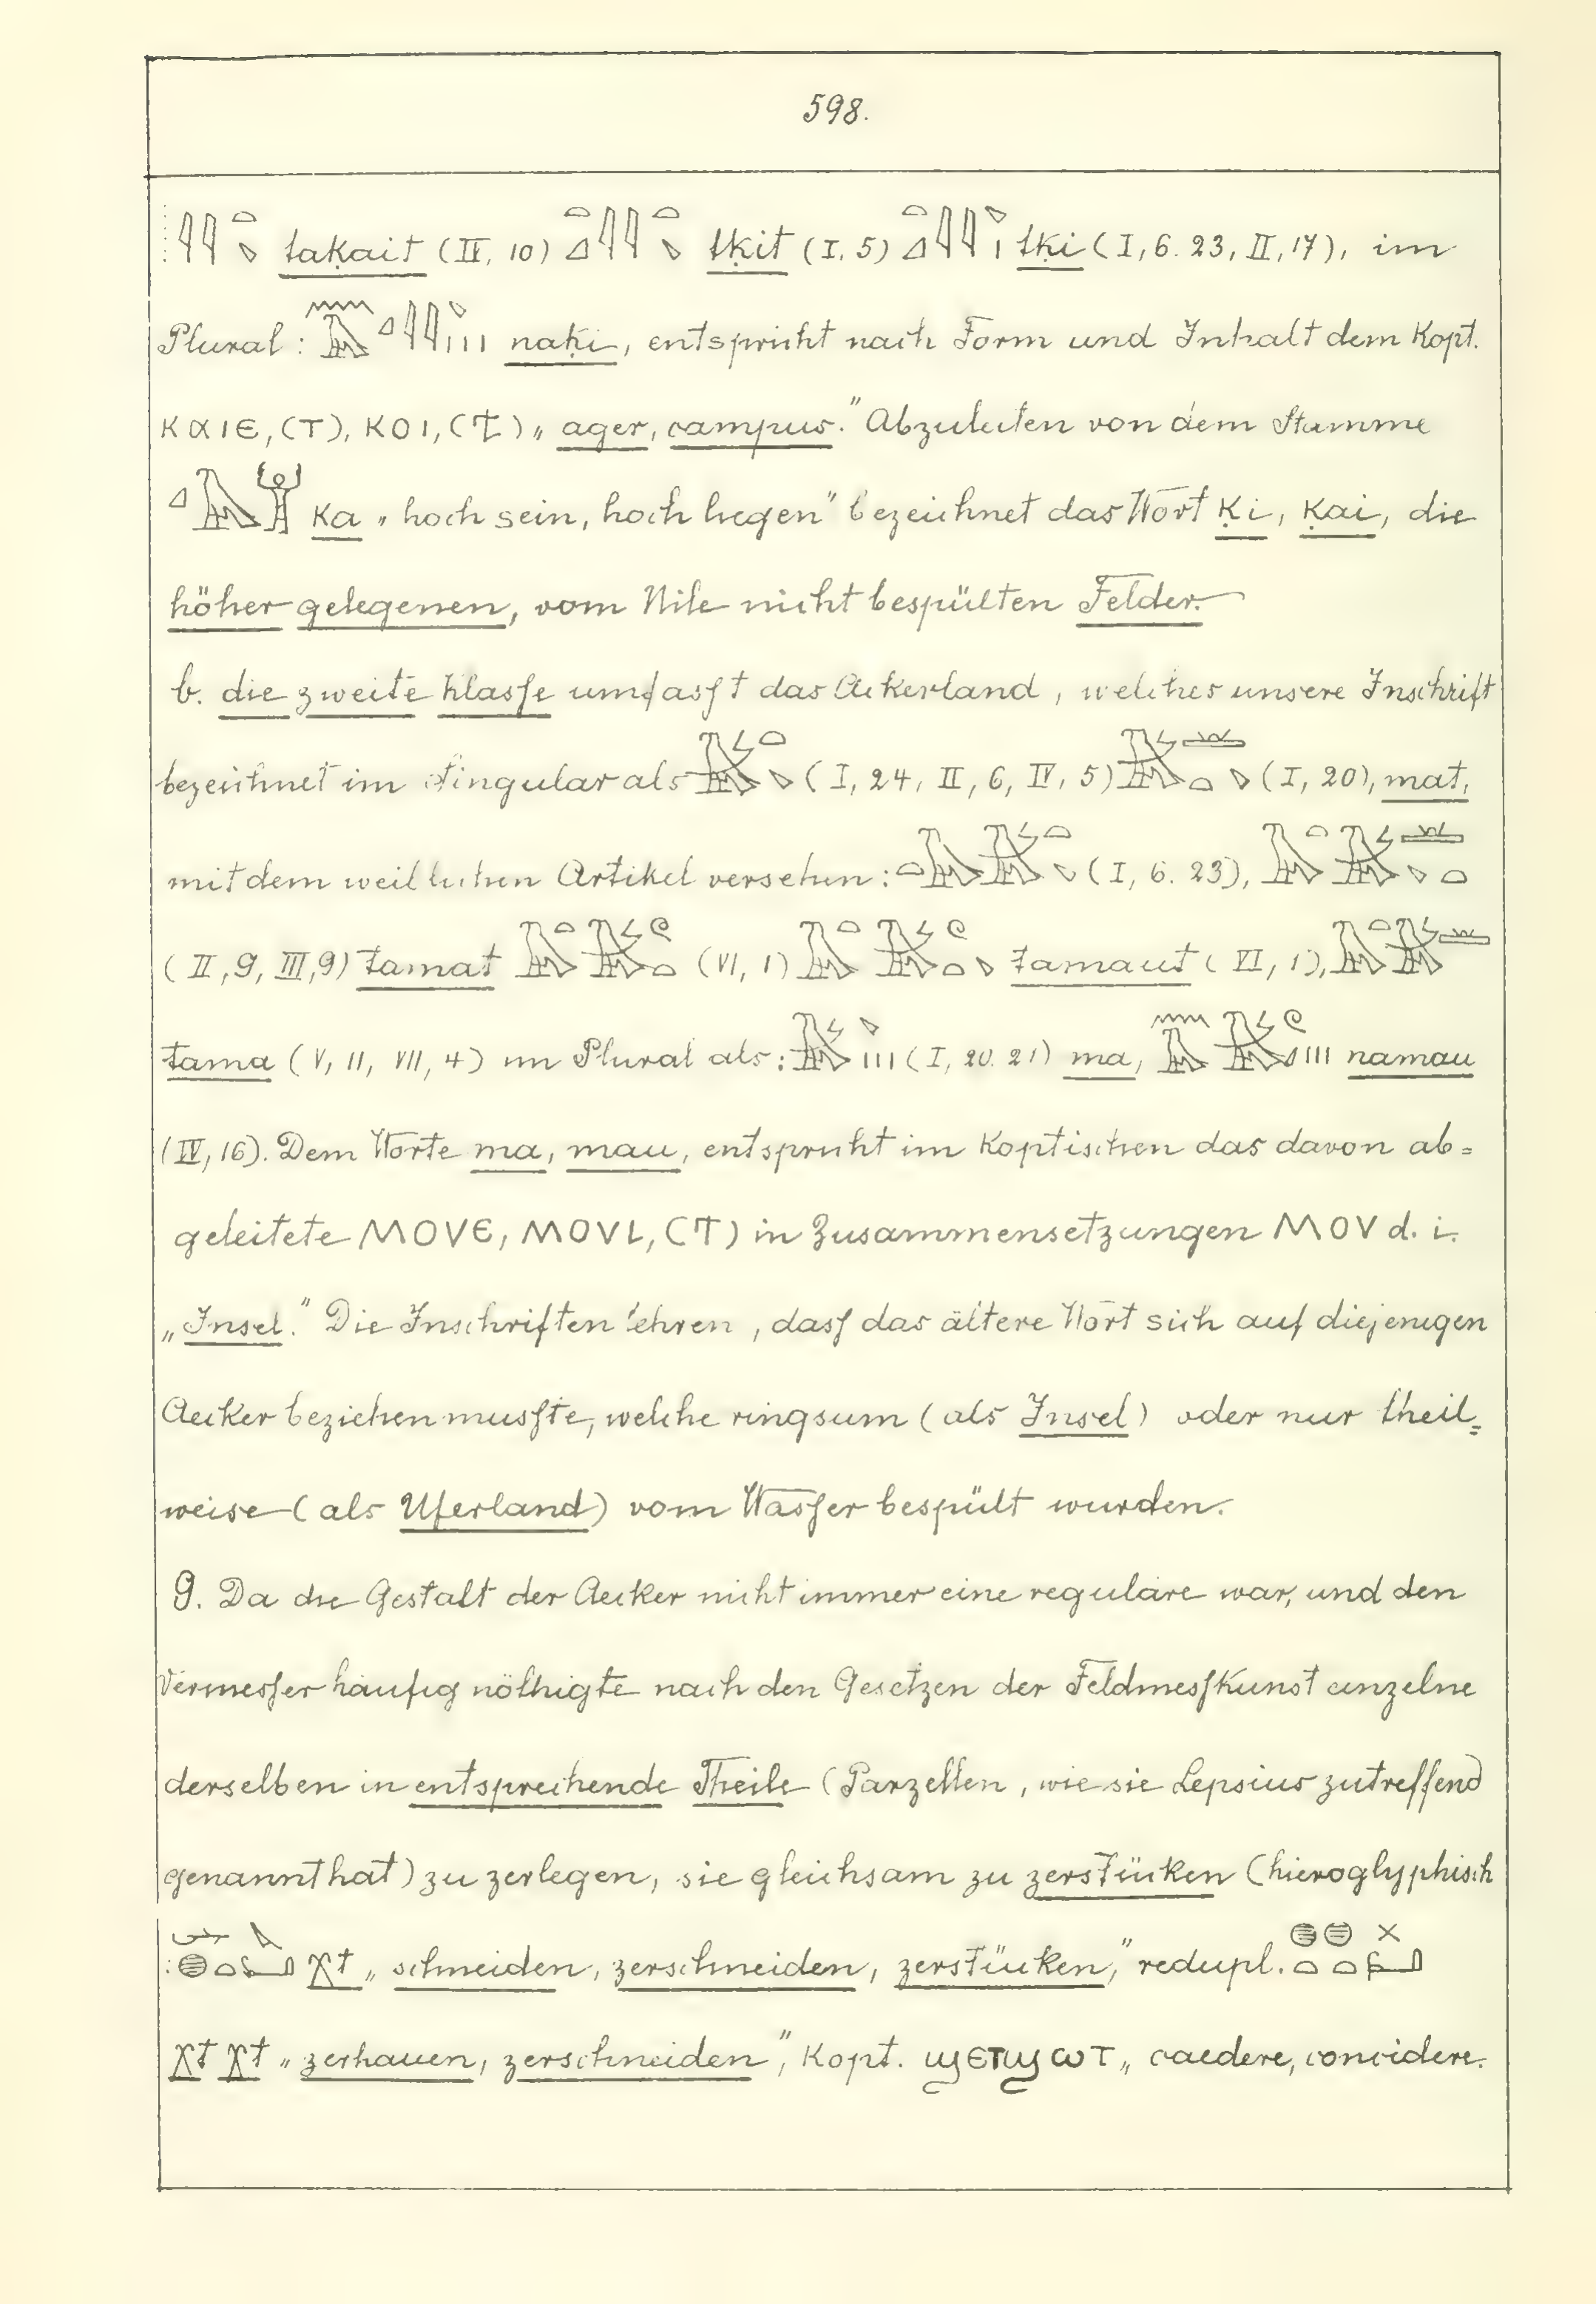 598.
taḳait (IV, 10) tḳit (I, 5) tḳi (I, 6. 23, II, 17), im
Plural: naḳi, entspricht nach Form und Inhalt dem Kopt.
ⲕⲁⲓⲉ, (ⲧ), ⲕⲟⲓ, (ϯ) „ager, campus.“ Abzuleiten von dem Stamme
ḳa „hoch sein, hoch liegen“ bezeichnet das Wort ḳi, ḳai, die
höher gelegenen, vom Nile nicht bespülten Felder.
b. die zweite Klasse umfasst das Ackerland, welches unsere Inschrift
bezeichnet im Singular als (I, 24, II, 6, IV, 5) (I, 20), mat,
mit dem weiblichen Artikel versehen: (I, 6. 23),
(II, 9, III, 9) tamat (VI, 1) tamaut (VI, 1),
tama (V, 11, VII, 4) im Plural als: (I, 20. 21) ma, namau
(IV, 16). Dem Worte ma, mau, entspricht im Koptischen das davon ab=
geleitete ⲘⲞⲨⲈ, ⲘⲞⲨⲒ, (Ⲧ) in Zusammensetzungen ⲘⲞⲨ d. i.
„Insel.“ Die Inschriften lehren, dass das ältere Wort sich auf diejenigen
Aecker beziehen musste, welche ringsum (als Insel) oder nur theil=
weise (als Uferland) vom Wasser bespült wurden.
9. Da die Gestalt der Aecker nicht immer eine reguläre war, und den
Vermesser häufig nöthigte nach den Gesetzen der Feldmesskunst einzelne
derselben in entsprechende Theile (Parzellen, wie sie Lepsius zutreffend
genannt hat) zu zerlegen, sie gleichsam zu zerstücken (hieroglyphisch
χt „schneiden, zerschneiden, zerstücken,“ redupl.
χt χt „zerhauen, zerschneiden“, Kopt. ϣⲉⲧϣⲱⲧ „caedere, concidere.